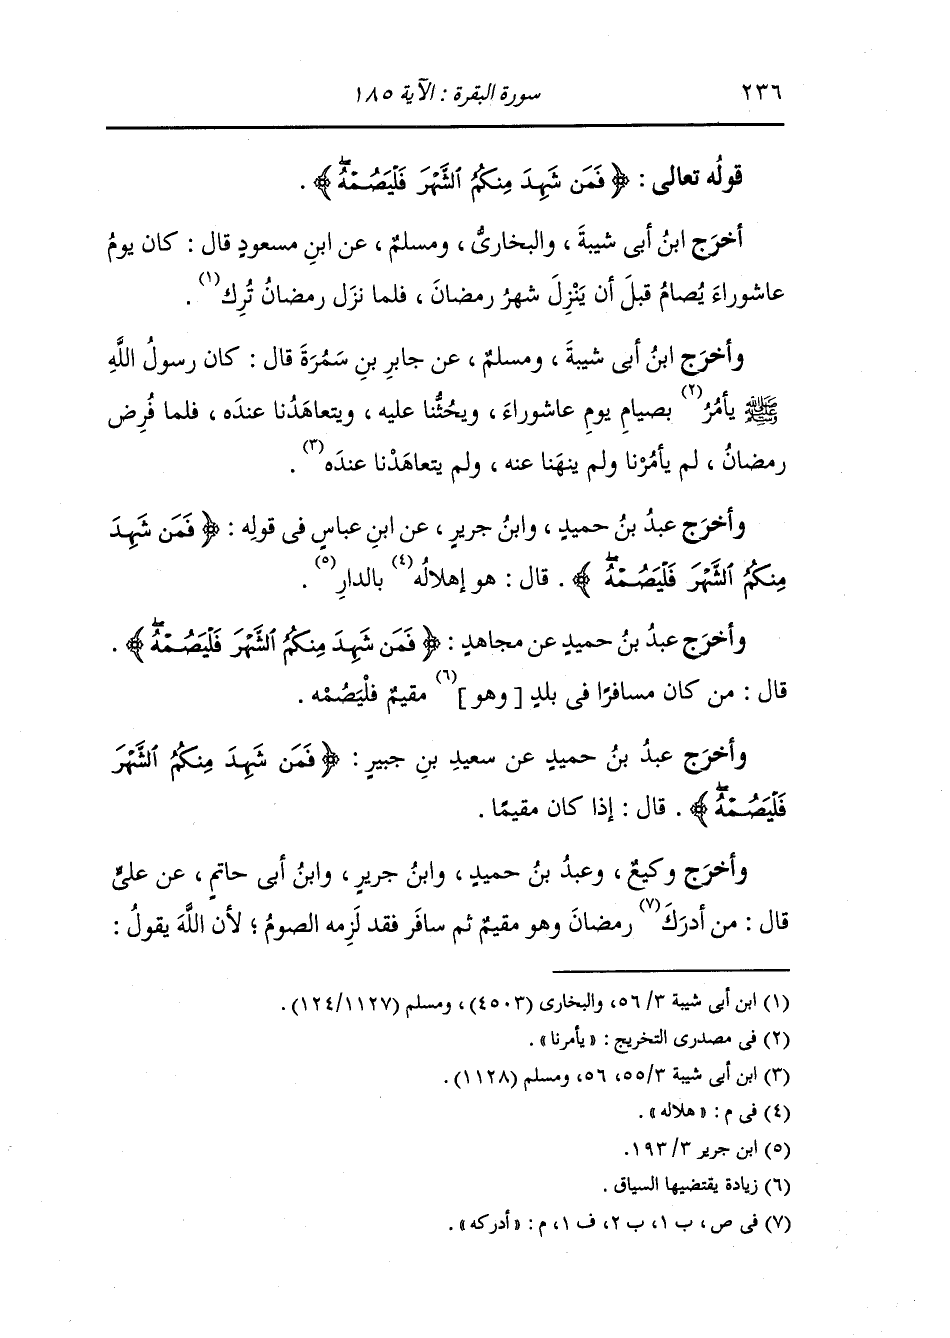 ٢٣٦ سورة البقرة : الآية ١٨٥
قولُه تعالى : ﴿ فَمَن شَهِدَ مِنكُمُ ٱلشَّهْرَ فَلْيَصُمْهُۖ ﴾ .
أخرَج ابنُ أبى شيبةَ ، والبخارىُّ ، ومسلمٌ ، عن ابنِ مسعودٍ قال : كان يومُ
عاشوراءَ يُصامُ قبلَ أن يَنْزِلَ شهرُ رمضانَ ، فلما نزَل رمضانُ تُرِك(١) .
وأخرَج ابنُ أبى شيبةَ ، ومسلمٌ ، عن جابرِ بنِ سَمُرَةَ قال : كان رسولُ اللَّهِ
ﷺ يأمُرُ(٢) بصيامِ يومِ عاشوراءَ ، ويحُثُّنا عليه ، ويتعاهَدُنا عندَه ، فلما فُرِض
رمضانُ ، لم يأمُرْنا ولم ينهَنا عنه ، ولم يتعاهَدْنا عندَه(٣) .
وأخرَج عبدُ بنُ حميدٍ ، وابنُ جريرٍ ، عن ابنِ عباسٍ فى قولِه : ﴿ فَمَن شَهِدَ
مِنكُمُ ٱلشَّهْرَ فَلْيَصُمْهُۖ ﴾ . قال : هو إهلالُه(٤) بالدارِ(٥) .
وأخرَج عبدُ بنُ حميدٍ عن مجاهدٍ : ﴿ فَمَن شَهِدَ مِنكُمُ ٱلشَّهْرَ فَلْيَصُمْهُۖ ﴾ .
قال : من كان مسافرًا فى بلدٍ [ وهو ](٦) مقيمٌ فلْيَصُمْه .
وأخرَج عبدُ بنُ حميدٍ عن سعيدِ بنِ جبيرٍ : ﴿ فَمَن شَهِدَ مِنكُمُ ٱلشَّهْرَ
فَلْيَصُمْهُۖ ﴾ . قال : إذا كان مقيمًا .
وأخرَج وكيعٌ ، وعبدُ بنُ حميدٍ ، وابنُ جريرٍ ، وابنُ أبى حاتمٍ ، عن علىٍّ
قال : من أدرَكَ(٧) رمضانَ وهو مقيمٌ ثم سافَر فقد لَزِمه الصومُ ؛ لأن اللَّهَ يقولُ :
(١) ابن أبى شيبة ٣/ ٥٦، والبخارى (٤٥٠٣) ، ومسلم (١٢٤/١١٢٧) .
(٢) فى مصدرى التخريج : «يأمرنا» .
(٣) ابن أبى شيبة ٥٥/٣، ٥٦، ومسلم (١١٢٨) .
(٤) فى م : «هلاله» .
(٥) ابن جرير ٣/ ١٩٣.
(٦) زيادة يقتضيها السياق .
(٧) فى ص ، ب ١، ب ٢، ف ١، م : «أدركه» .